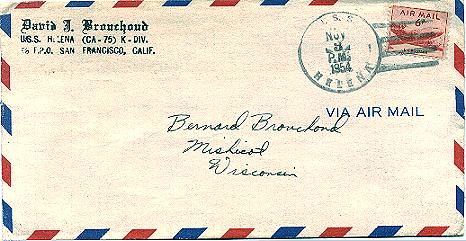 David J. Brouchoud
U.S.S. HELENA (CA-75) K-DIV.
F.P.O. SAN FRANCISCO, CALIF.
U.S.S.
NOV
3
P.M.
1954
HELENA
AIR MAIL
6¢
VIA AIR MAIL
Bernard Brouchoud
Mishicot
Wisconsin